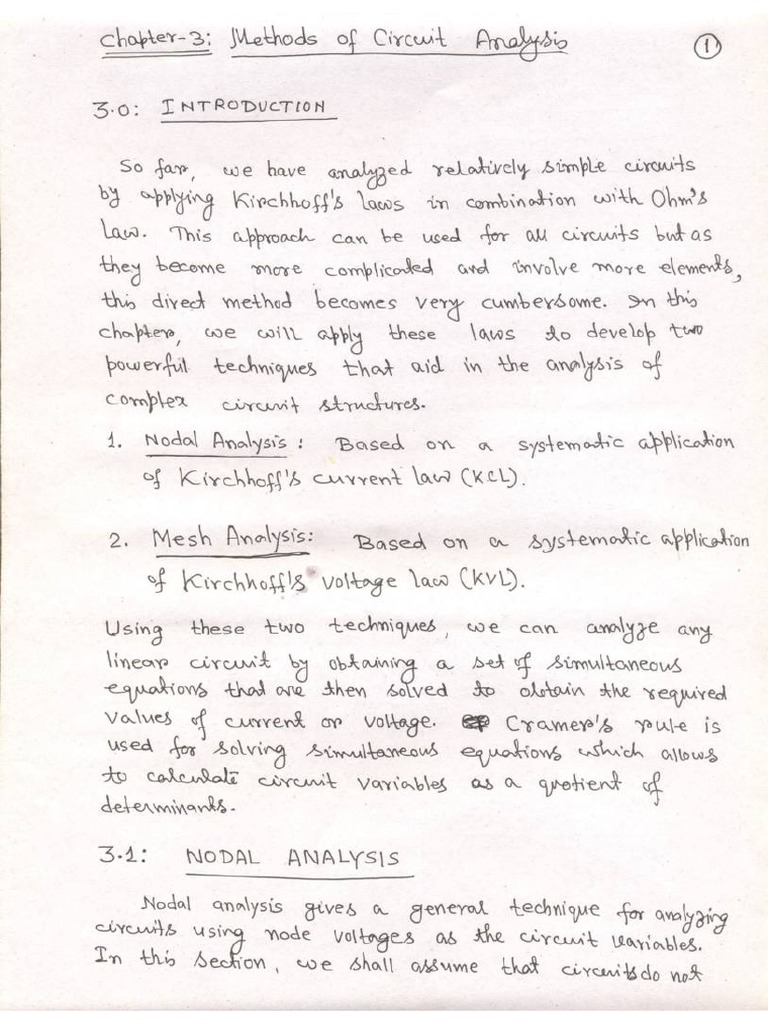 Chapter-3: Methods of Circuit Analysis
1
3.0: INTRODUCTION
So far, we have analyzed relatively simple circuits
by applying Kirchhoff's laws in combination with Ohm's
Law. This approach can be used for all circuits but as
they become more complicated and involve more elements,
this direct method becomes very cumbersome. In this
chapter, we will apply these laws to develop two
powerful techniques that aid in the analysis of
complex circuit structures.
1. Nodal Analysis: Based on a systematic application
of Kirchhoff's current law (KCL).
2. Mesh Analysis: Based on a systematic application
of Kirchhoff's voltage law (KVL).
Using these two techniques, we can analyze any
linear circuit by obtaining a set of simultaneous
equations that are then solved to obtain the required
values of current or voltage. Cramer's rule is
used for solving simultaneous equations which allows
to calculate circuit variables as a quotient of
determinants.
3.1: NODAL ANALYSIS
Nodal analysis gives a general technique for analyzing
circuits using node voltages as the circuit variables.
In this section, we shall assume that circuits do not